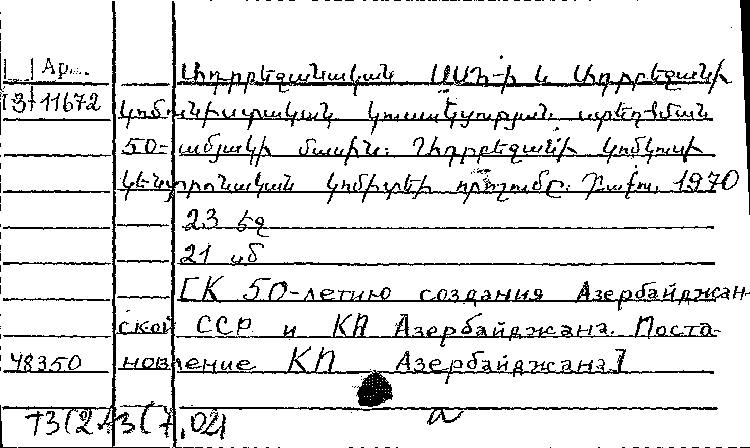 Ар...
Ադրբեջանական ՍՍՌ-ի և Ադրբեջանի
3+11672 կոմունիստական կուսակցության ստեղծման
50-ամյակի մասին: Ադրբեջանի կոմկուսի
կենտրոնական կոմիտեի որոշումը. Բաքու, 1970
23 էջ
21 սմ
[К 50-летию создания Азербайджан-
ской ССР и КП Азербайджана. Поста-
48350 новление КП Азербайджана]